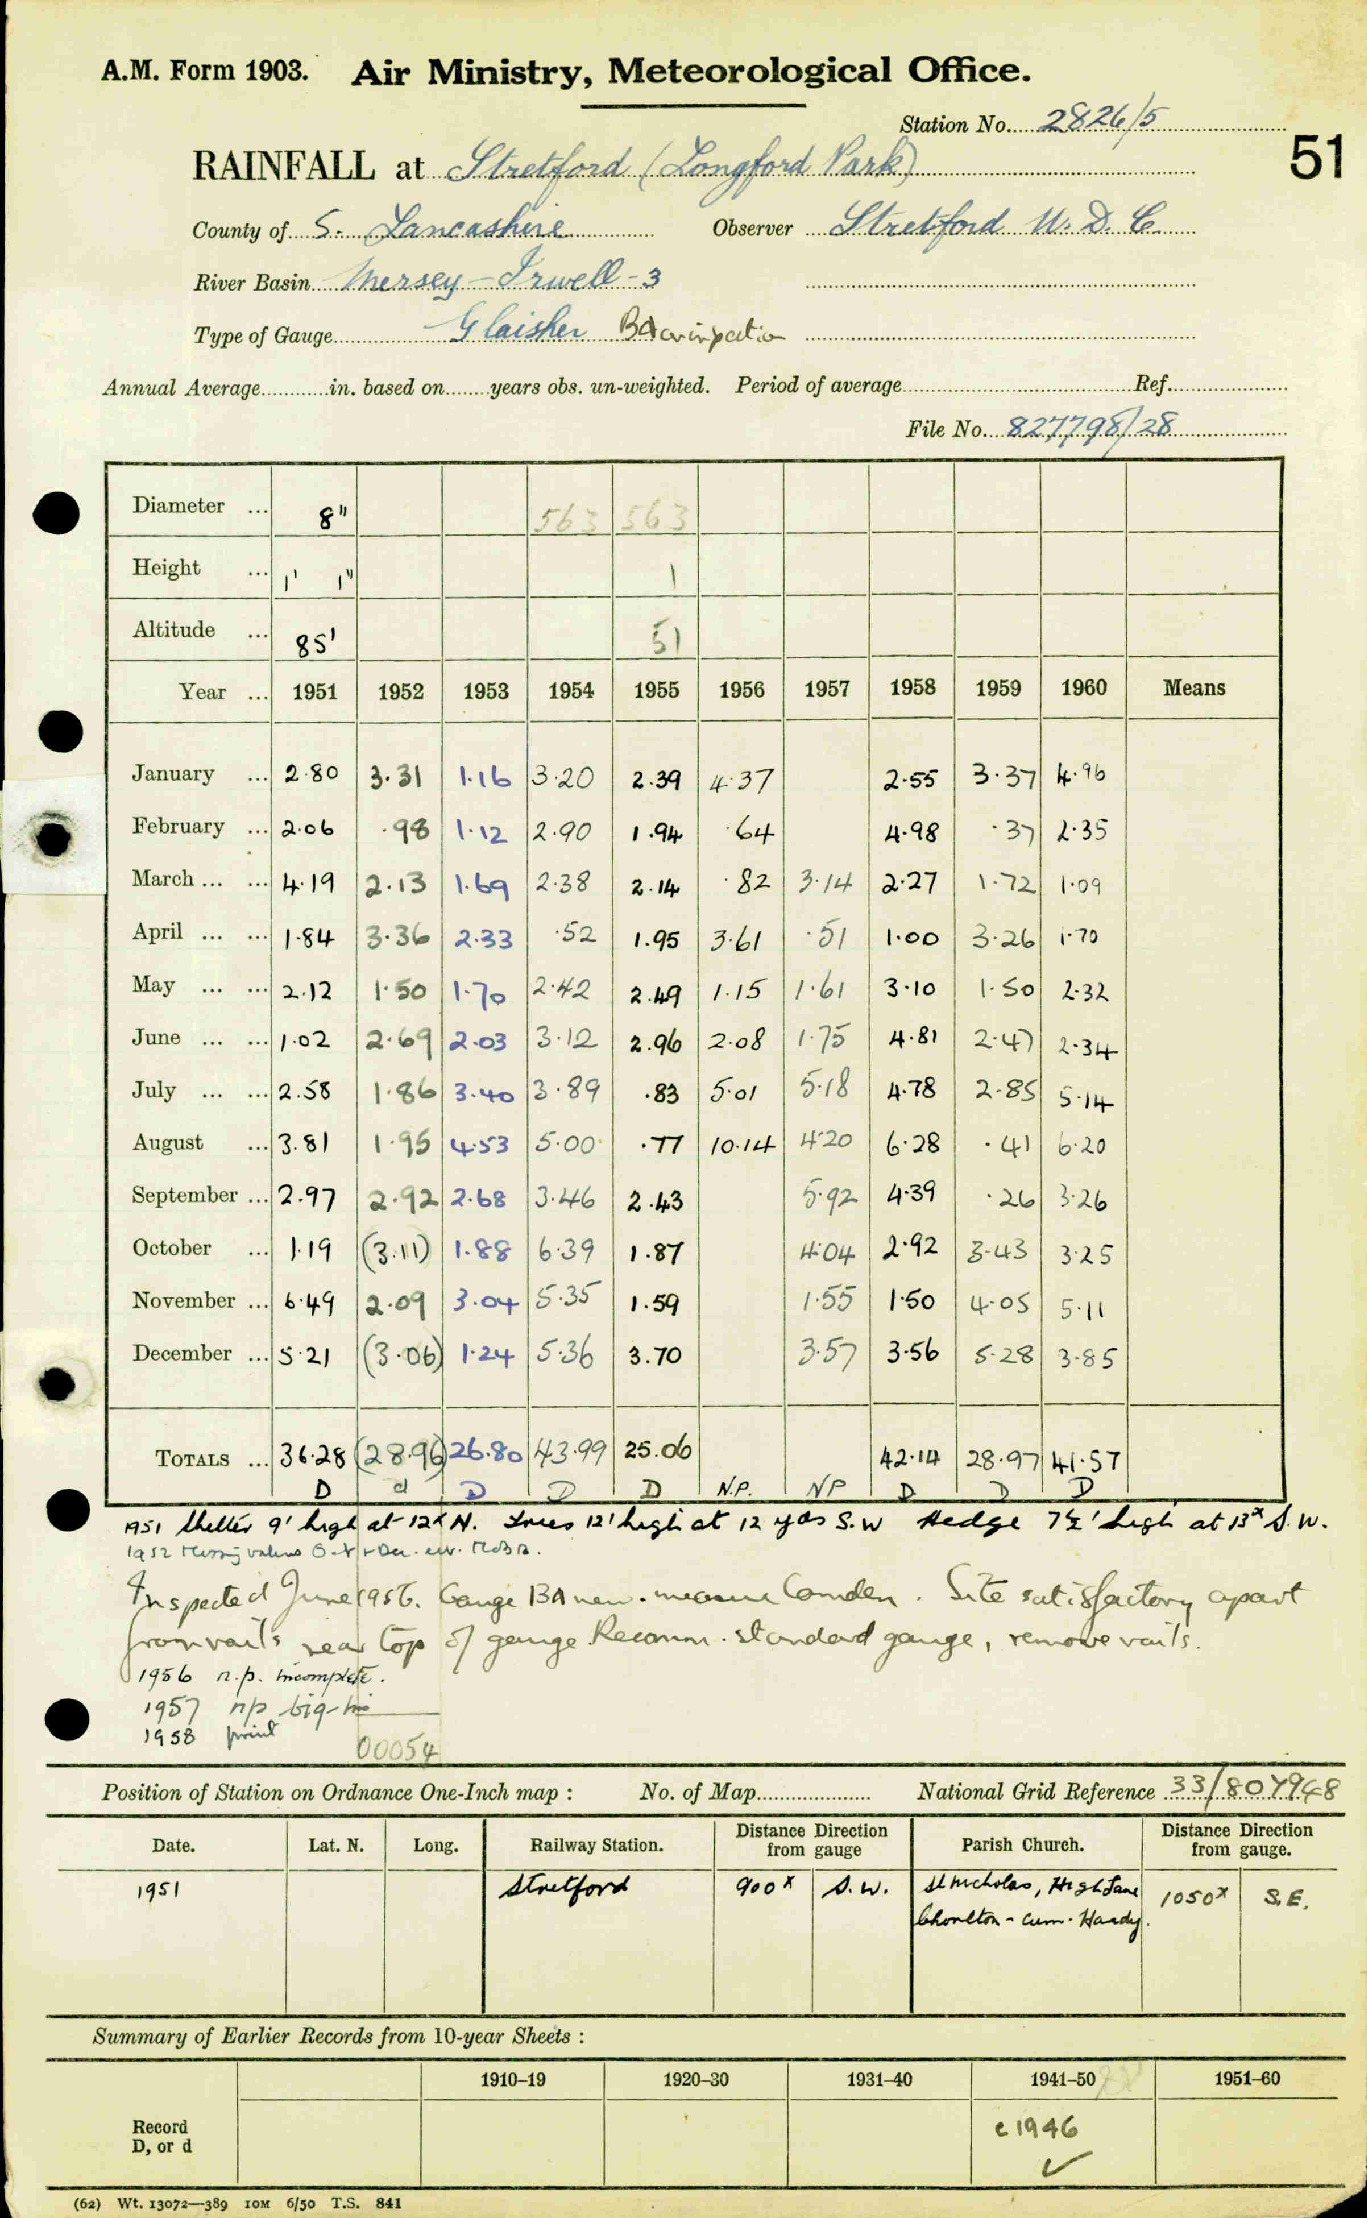 A.M. Form 1903. Air Ministry, Meteorological Office.
Station No. 2826/5
51
RAINFALL at Stretford (Longford Park)
County of S. Lancashire Observer Stretford U. D. C.
River Basin Mersey - Irwell - 3
Type of Gauge Glaisher BA on inspection
Annual Average in. based on years obs. un-weighted. Period of average Ref.
File No. 827798/28
Diameter ... 8" 563 563
Height ... 1' 1" 1
Altitude ... 85' 51
Year ... 1951 1952 1953 1954 1955 1956 1957 1958 1959 1960 Means
January ... 2.80 3.31 1.16 3.20 2.39 4.37 2.55 3.37 4.96
February ... 2.06 .98 1.12 2.90 1.94 .64 4.98 .37 2.35
March ... ... 4.19 2.13 1.69 2.38 2.14 .82 3.14 2.27 1.72 1.09
April ... ... 1.84 3.36 2.33 .52 1.95 3.61 .51 1.00 3.26 1.70
May ... ... 2.12 1.50 1.70 2.42 2.49 1.15 1.61 3.10 1.50 2.32
June ... ... 1.02 2.69 2.03 3.12 2.96 2.08 1.75 4.81 2.47 2.34
July ... ... 2.58 1.86 3.40 3.89 .83 5.01 5.18 4.78 2.85 5.14
August ... 3.81 1.95 4.53 5.00 .77 10.14 4.20 6.28 .41 6.20
September ... 2.97 2.92 2.68 3.46 2.43 5.92 4.39 .26 3.26
October ... 1.19 (3.11) 1.88 6.39 1.87 4.04 2.92 3.43 3.25
November ... 6.49 2.09 3.04 5.35 1.59 1.55 1.50 4.05 5.11
December ... 5.21 (3.06) 1.24 5.36 3.70 3.57 3.56 5.28 3.85
TOTALS ... 36.28 (28.96) 26.80 43.99 25.06 42.14 28.97 41.57
D d D D D N.P. NP D D D
1951 Shelter 9' high at 12x N. Trees 12' high at 12 yds S.W Hedge 7½' high at 13x S.W.
1952 Missing values Oct + Dec. est.
Inspected June 1956. Gauge BA new. measure Camden. Site satisfactory apart
from rails near top of gauge Recomm. standard gauge, remove rails.
1956 n.p. incomplete.
1957 np
1958 print
00054
Position of Station on Ordnance One-Inch map : No. of Map National Grid Reference 33/807948
Date. Lat. N. Long. Railway Station. Distance from gauge Direction Parish Church. Distance from gauge. Direction
1951 Stretford 900x S.W. St Nicholas, High Lane 1050x S.E.
Chorlton - cum - Hardy.
Summary of Earlier Records from 10-year Sheets :
1910–19 1920–30 1931–40 1941–50 1951–60
Record
D, or d
c 1946
(62) Wt. 13072—389 10M 6/50 T.S. 841